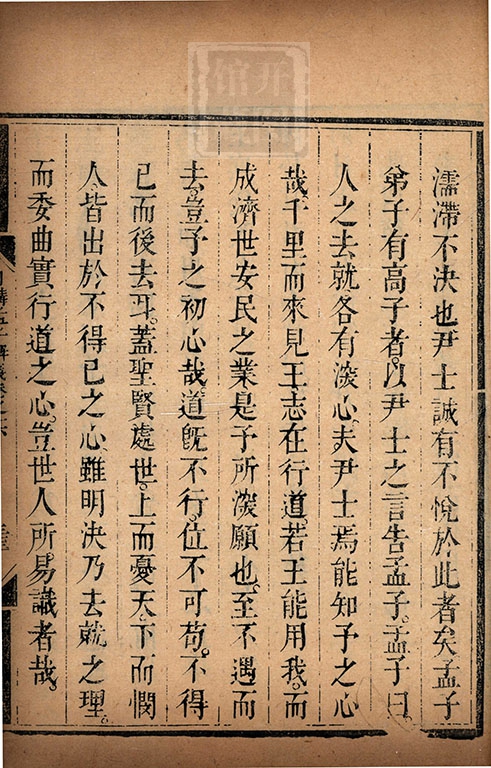 濡滯不決也尹士誠有不悅於此者矣孟子
弟子有高子者。以尹士之言告孟子。孟子曰。
人之去就各有深心。夫尹士焉能知予之心
哉。千里而來見王志在行道。若王能用我。而
成濟世安民之業。是予所深願也。至不遇而
去。豈予之初心哉。道旣不行。位不可苟。不得
已而後去耳。蓋聖賢處世。上而憂天。下而憫
人。皆出於不得已之心。雖明決乃去就之理。
而委曲實行道之心。豈世人所易識者哉。